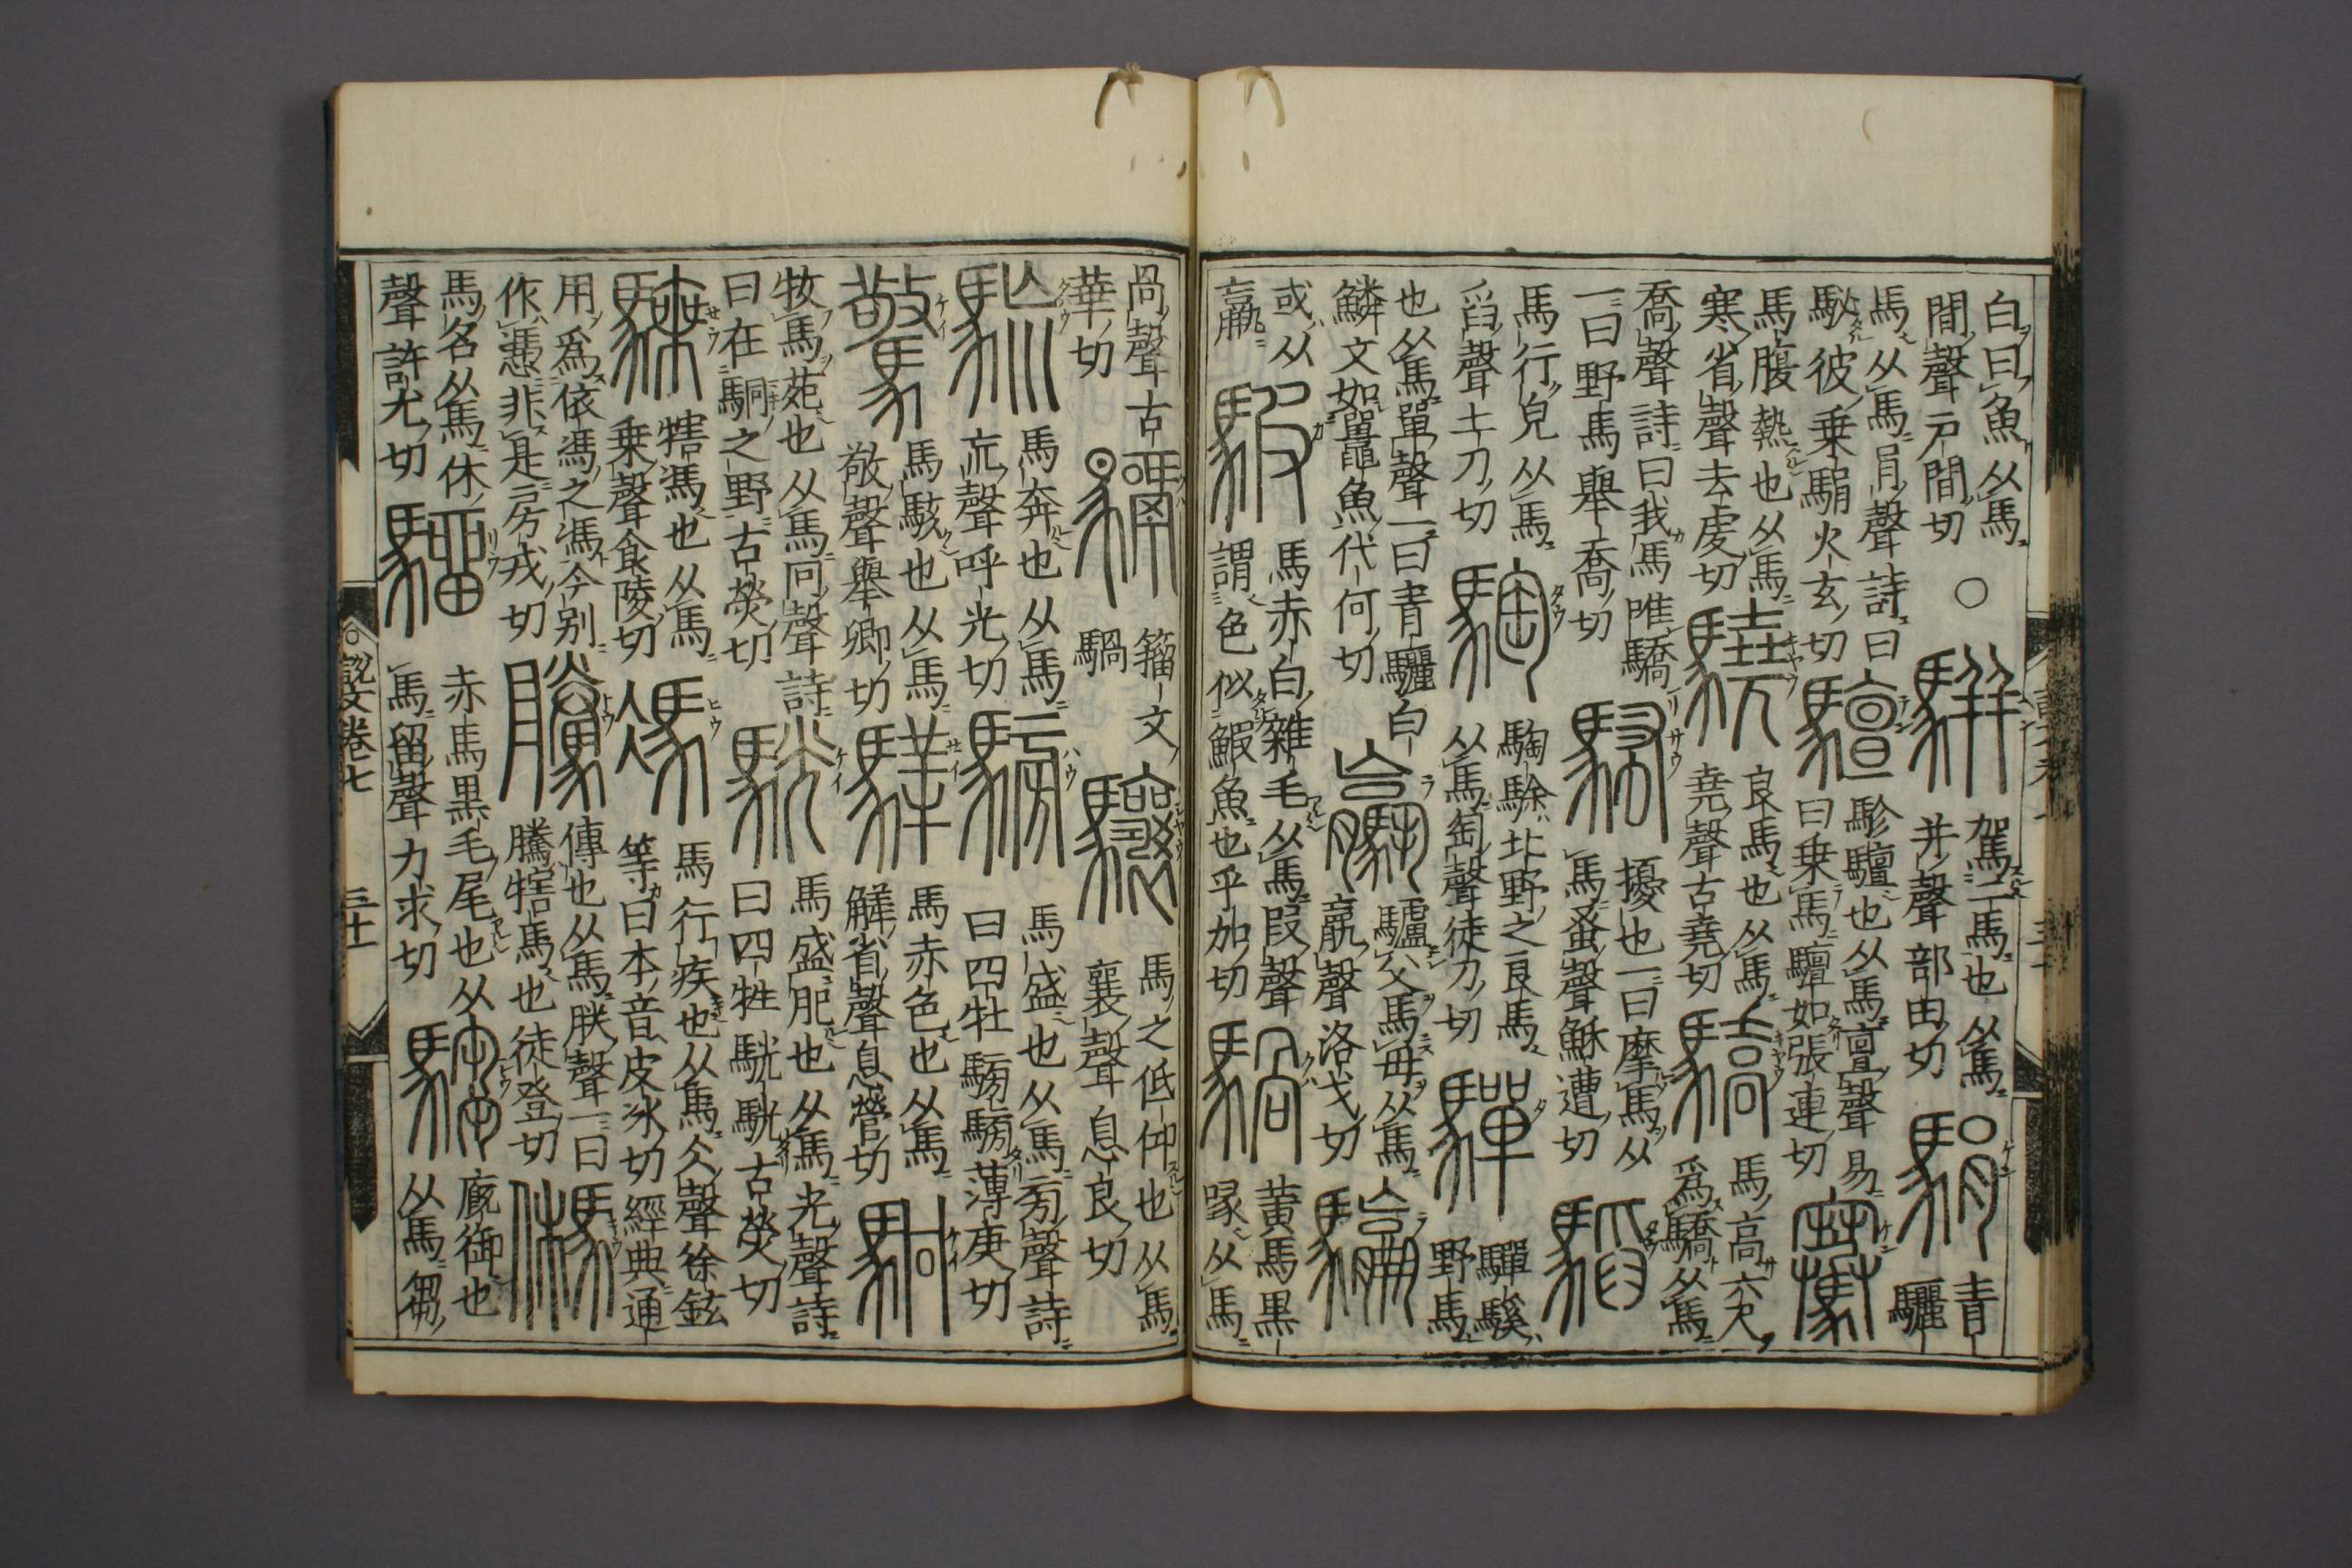 白曰魚从馬
間聲戸間切
○
騈
駕二馬也从馬
并聲部田切
駽
青
驪
馬从馬肙聲詩曰
駜彼乗駽火玄切
驙
駗驙也从馬亶聲易
曰乗馬驙如張連切
騫
馬腹熱也从馬
寒省聲去虔切
驍
良馬也从馬
堯聲古堯切
驕
馬高六尺
爲驕从馬
喬聲詩曰我馬唯驕
一曰野馬舉喬切
騷
擾也一曰摩馬从
馬蚤聲穌遭切
馬行皃从馬
舀聲土刀切
騊
騊駼北野之良馬
从馬匋聲徒刀切
驒
驒騱
野馬
也从馬單聲一曰青驪白
鱗文如鼉魚代何切
驢父馬母从馬
聲洛戈切
或从
羸
騢
馬赤白雜毛从馬叚聲
謂色似鰕魚也乎加切
騧
黄馬黒
喙从馬
咼聲古
華切
籒文
騧
驤
馬之低仰也从馬
襄聲息良切
馬奔也从馬
巟聲呼光切
騯
馬盛也从馬旁聲詩
曰四牡騯騯薄庚切
驚
馬駭也从馬
敬聲舉卿切
騂
馬赤色也从馬
觲省聲息營切
駉
牧馬苑也从馬冋聲詩
曰在駉之野古熒切
駫
馬盛肥也从馬光聲詩
曰四牡駫駫古熒切
騬
犗馬也从馬
乗聲食陵切
馮
馬行疾也从馬仌聲徐鉉
等曰本音皮冰切經典通
用爲依馮之馮今别
作憑非是房戎切
騰
傳也从馬朕聲一曰
騰犗馬也徒登切
馬名从馬休
聲許尤切
騮
赤馬黒毛尾也从
馬留聲力求切
騶
廄御也
从馬芻
説文卷七
三十一